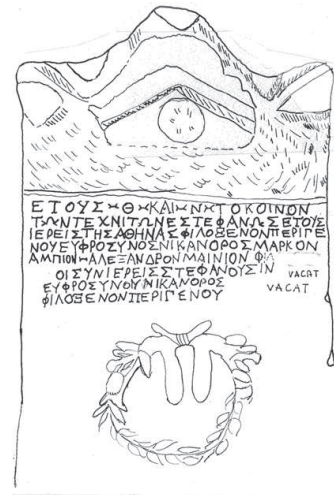 ΕΤΟΥΣ⋈Θ⋈ΚΑΙ⋈Ν⋈ΤΟΚΟΙΝΟΝ
ΤΩΝΤΕΧΝΙΤΩΝΕΣΤΕΦΑΝΩΣΕΤΟΥΣ
ΙΕΡΕΙΣΤΗΣΑΘΗΝΑΣΦΙΛΟΞΕΝΟΝΠΕΡΙΓΕ
ΝΟΥΕΥΦΡΟΣΥΝΟΣΝΙΚΑΝΟΡΟΣΜΑΡΚΟΝ
ΑΜΠΙΟΝ⋈ΑΛΕΞΑΝΔΡΟΝΜΑΙΝΙΟΝ
ΟΙΣΥΝΙΕΡΕΙΣΣΤΕΦΑΝΟΥΣΙΝ VACAT
ΕΥΦΡΟΣΥΝΟΥΝΙΚΑΝΟΡΟΣ VACAT
ΦΙΛΟΞΕΝΟΝΠΕΡΙΓΕΝΟΥ